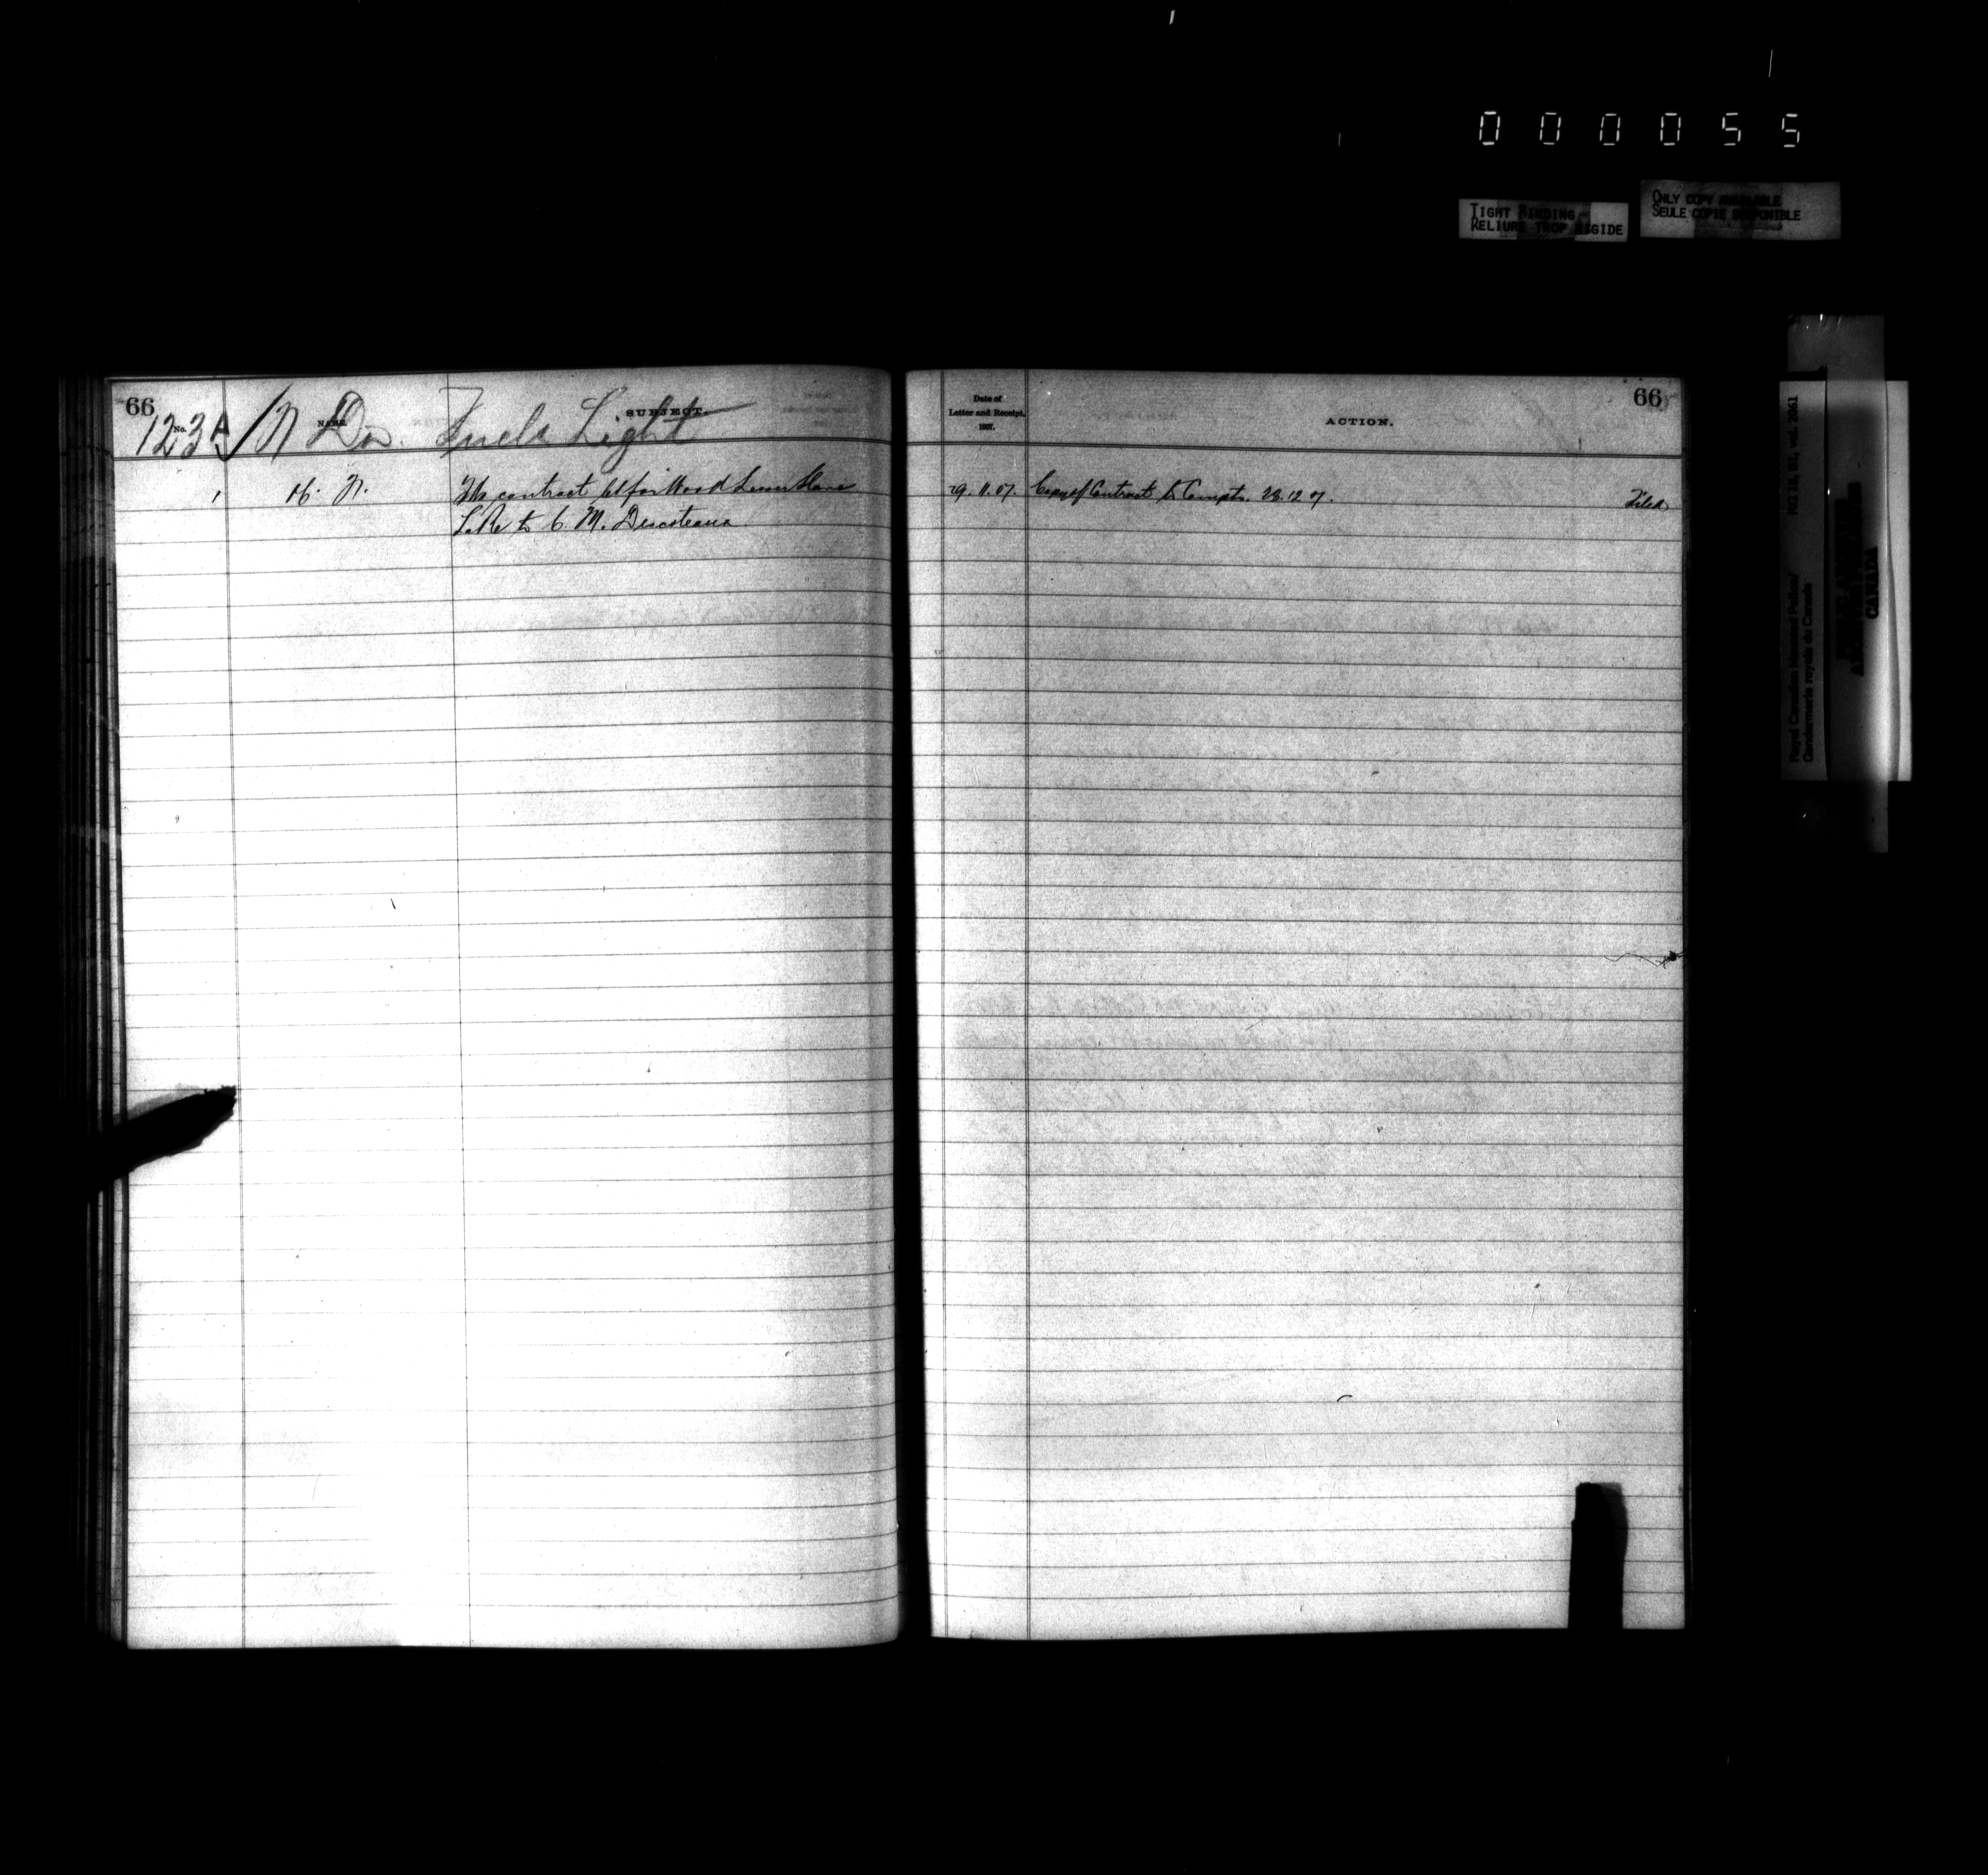 000055
TIGHT BINDING
RELIURE TROP RIGIDE
ONLY COPY AVAILABLE
SEULE COPIE DISPONIBLE
66
No.
NAME
SUBJECT.
123 N Div. Fuel & Light
1 H. N. contract for Wood Lesser Slave
Lake to C. M.
66
Date of
Letter and Receipt,
1907.
ACTION.
29.11.07. Copy of Contract to Compt. 28.12.07. Filed
Royal Canadian Mounted Police/
Gendarmerie royale du Canada
RG 18, B1, vol. 2061
CANADA